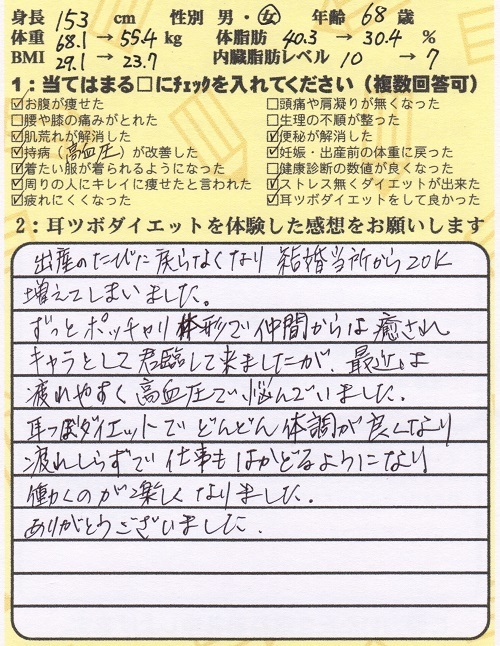 身長 153 cm 性別 男・女 年齢 68 歳
体重 68.1 → 55.4 kg 体脂肪 40.3 → 30.4 %
BMI 29.1 → 23.7 内臓脂肪レベル 10 → 7
1：当てはまる□にﾁｪｯｸを入れてください（複数回答可）
☑お腹が痩せた □頭痛や肩凝りが無くなった
□腰や膝の痛みがとれた □生理の不順が整った
☑肌荒れが解消した ☑便秘が解消した
☑持病（高血圧）が改善した ☑妊娠・出産前の体重に戻った
☑着たい服が着られるようになった □健康診断の数値が良くなった
☑周りの人にキレイに痩せたと言われた ☑ストレス無くダイエットが出来た
☑疲れにくくなった ☑耳ツボダイエットをして良かった
2：耳ツボダイエットを体験した感想をお願いします
出産のたびに戻らなくなり 結婚当所から20K
増えてしまいました。
ずっとポッチャリ体形で仲間からは癒され
キャラとして君臨して来ましたが、最近は
疲れやすく高血圧で悩んでいました。
耳つぼダイエットでどんどん体調が良くなり
疲れしらずで仕事もはかどるようになり
働くのが楽しくなりました。
ありがとうございました.